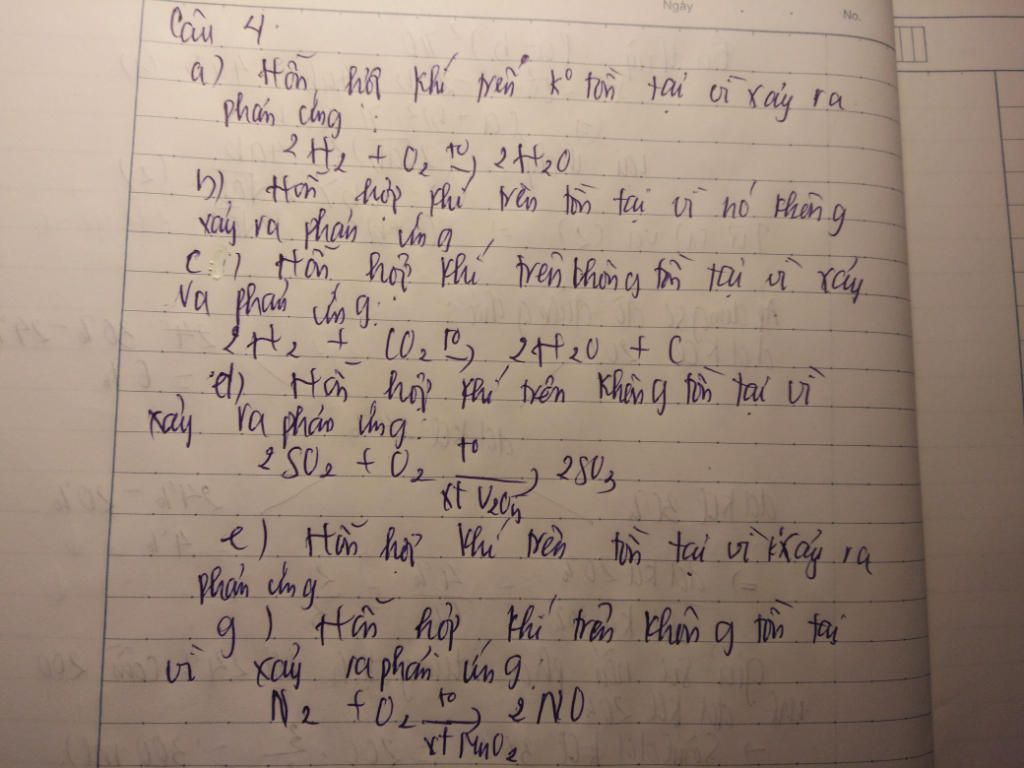 Ngày
No.
Câu 4.
a) Hỗn hợp khí trên k° tồn tại vì xảy ra
phản ứng :
2H2 + O2 t° → 2H2O
b) Hỗn hợp khí trên tồn tại vì nó không
xảy ra phản ứng
c) Hỗn hợp khí trên không tồn tại vì xảy
ra phản ứng:
2H2 + CO2 t° → 2H2O + C
d) Hỗn hợp khí trên không tồn tại vì
xảy ra phản ứng
2SO2 + O2 t° → xt V2O5 2SO3
e) Hỗn hợp khí trên tồn tại vì k° xảy ra
phản ứng
g) Hỗn hợp khí trên không tồn tại
vì xảy ra phản ứng
N2 + O2 t° → xt MnO2 2NO